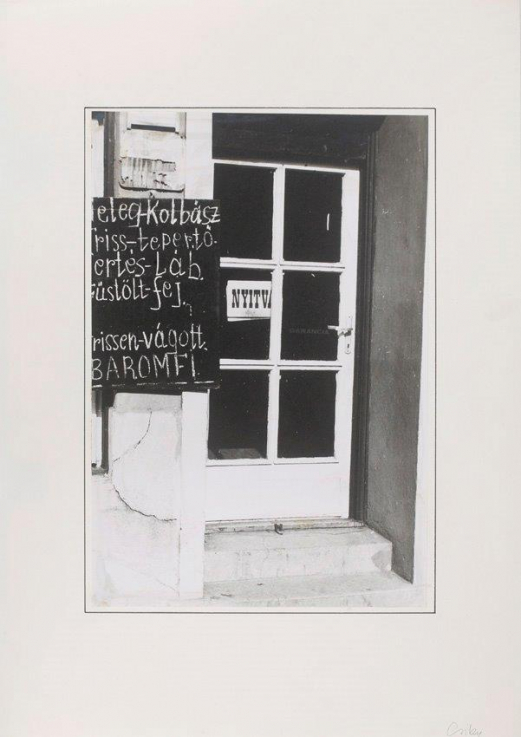 eleg-Kolbász
riss-tepertő.
ertés-Láb.
füstölt-fej.
rissen-vágott.
BAROMFI.
NYITVA